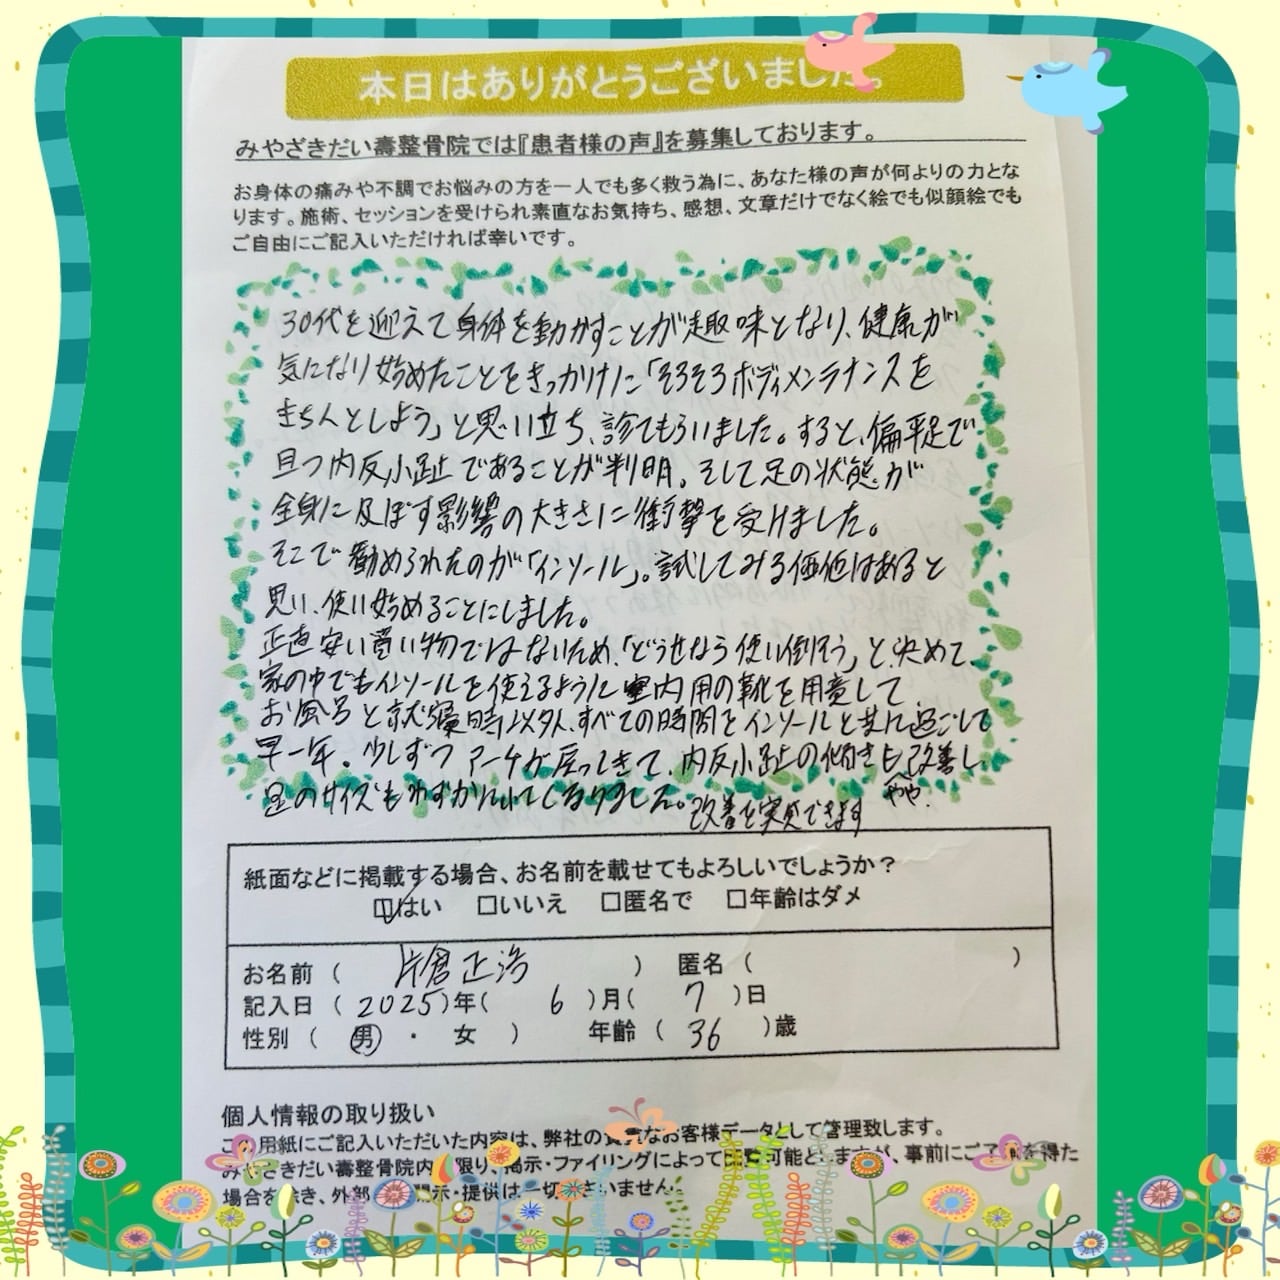 本日はありがとうございました。
みやざきだい壽整骨院では『患者様の声』を募集しております。
お身体の痛みや不調でお悩みの方を一人でも多く救う為に、あなた様の声が何よりの力とな
ります。施術、セッションを受けられ素直なお気持ち、感想、文章だけでなく絵でも似顔絵でも
ご自由にご記入いただければ幸いです。
30代を迎えて身体を動かすことが趣味となり、健康が
気になり始めたことをきっかけに「そろそろボディメンテナンスを
きちんとしよう」と思い立ち、診てもらいました。すると、偏平足で
且つ内反小趾であることが判明。そして足の状態が
全身に及ぼす影響の大きさに衝撃を受けました。
そこで勧められたのが「インソール」。試してみる価値はあると
思い、使い始めることにしました。
正直安い買い物ではないため、「どうせなら使い倒そう」と決めて、
家の中でもインソールを使えるように室内用の靴を用意して
お風呂と就寝時以外、すべての時間をインソールと共に過ごして
早一年。少しずつアーチが戻ってきて、内反小趾の傾きも改善し、
足のサイズもわずかに小さくなりました。
やや、
改善を実感できます
紙面などに掲載する場合、お名前を載せてもよろしいでしょうか？
☑はい □いいえ □匿名で □年齢はダメ
お名前（ 片倉正浩 ） 匿名（ ）
記入日（2025）年（ 6 ）月（ 7 ）日
性別（ 男 ・ 女 ） 年齢（ 36 ）歳
個人情報の取り扱い
この用紙にご記入いただいた内容は、弊社の貴重なお客様データとして管理致します。
みやざきだい壽整骨院内 限り、掲示・ファイリングによって閲覧可能と しますが、事前にご を得た
場合を除き、外部 開示・提供は一切 ざいません